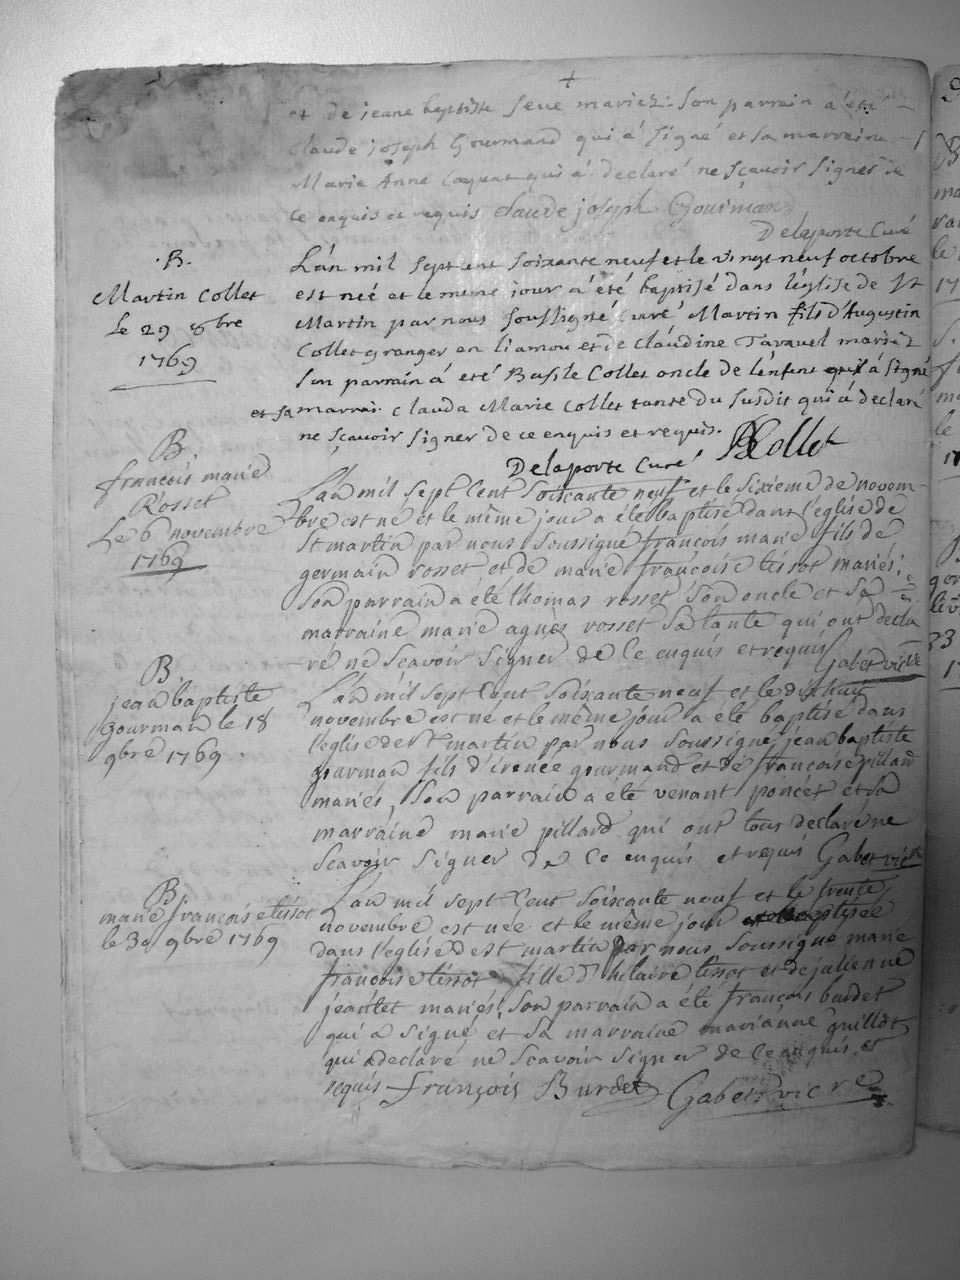 +
et de jeane baptiste seve mariez. Son parrain a été
Claude joseph Gourmand qui a signé et sa marraine
Marie Anne Coquat qui á declaré ne sçavoir signer de
ce enquis et requis claude joseph Gourman
Delaporte Curé
.B.
Martin Collet
Le 29 8bre
1769
L'án mil sept cent soixante neuf et le vingt neuf octobre
est néé et le meme jour á été baptisé dans l'église de St
Martin par nous soussigné curé Martin fils d'Augustin
Collet granger en liamou et de Claudine Taravel mariéz
son parrain á eté Basile Collet oncle de lénfent qui á signé
et sa marrai. clauda Marie Collet tante du susdit qui á declaré
ne sçavoir signer de ce enquis et requis. BCollet
Delaporte Curé
B.
françois marie
Rosset
Le 6 novembre
1769
L'an mil sept Cent soixante neuf et le sixieme de novem-
bre est né et le même jour a été baptisé dans l'église de
St martin par nous soussigné françois marie fils de
germain rosset et de marie françoise tissot mariés;
son parrain a été thomas rosset son oncle et sa
marraine marie agnès rosset sa tante qui ont decla
ré ne scavoir signer de Ce enquis et requis Gabet vicre
B
jean baptiste
gourman le 18
9bre 1769.
L'an mil sept Cent soixante neuf et le dixhuit
novembre est né et le même jour a été baptisé dans
l'eglise de st martin par nous soussigné jean baptiste
gourman fils d'irenée gourmand et de françoise pillard
mariés, son parrain a été venant poncet et sa
marraine marie pillard qui ont tous declaré ne
scavoir signer de Ce enquis et requis Gabet vicre
B
marie françoise tissot
le 30 9bre 1769
L'an mil sept Cent soixante neuf et le trente
novembre est née et le même jour baptisée
dans l'eglise de st martin par nous soussigné marie
françoise tissot fille d'hilaire tissot et de julienne
jeantet mariés, son parrain a été françois burdet
qui a signé et sa marraine marianne guillot
qui a declaré ne scavoir signer de Ce enquis et
requis françois Burdet Gabet vicre